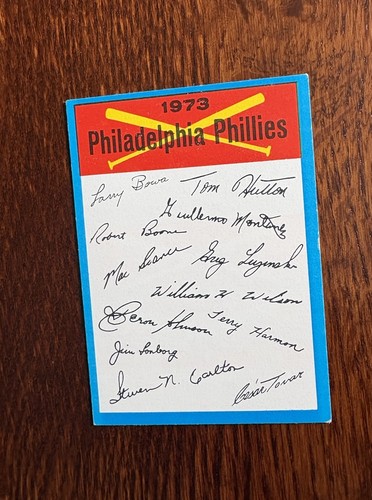 1973
Philadelphia Phillies
Larry Bowa
Tom Hutton
Guillermo Montanez
Robert Boone
Mac Scarce
Greg Luzinski
William H Wilson
Deron Johnson
Terry Harmon
Jim Lonborg
Steven N. Carlton
César Tovar